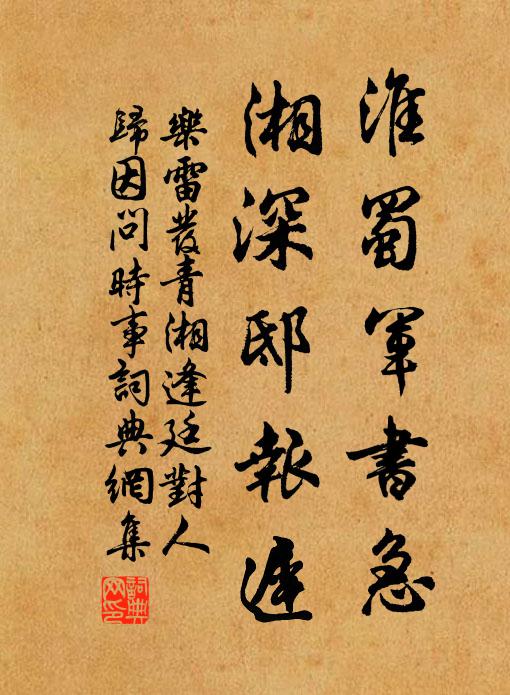 淮蜀軍書急
湘深邸報遲
樂雷發青湘逢廷對人
歸因問時事詞典網集
詞典網印